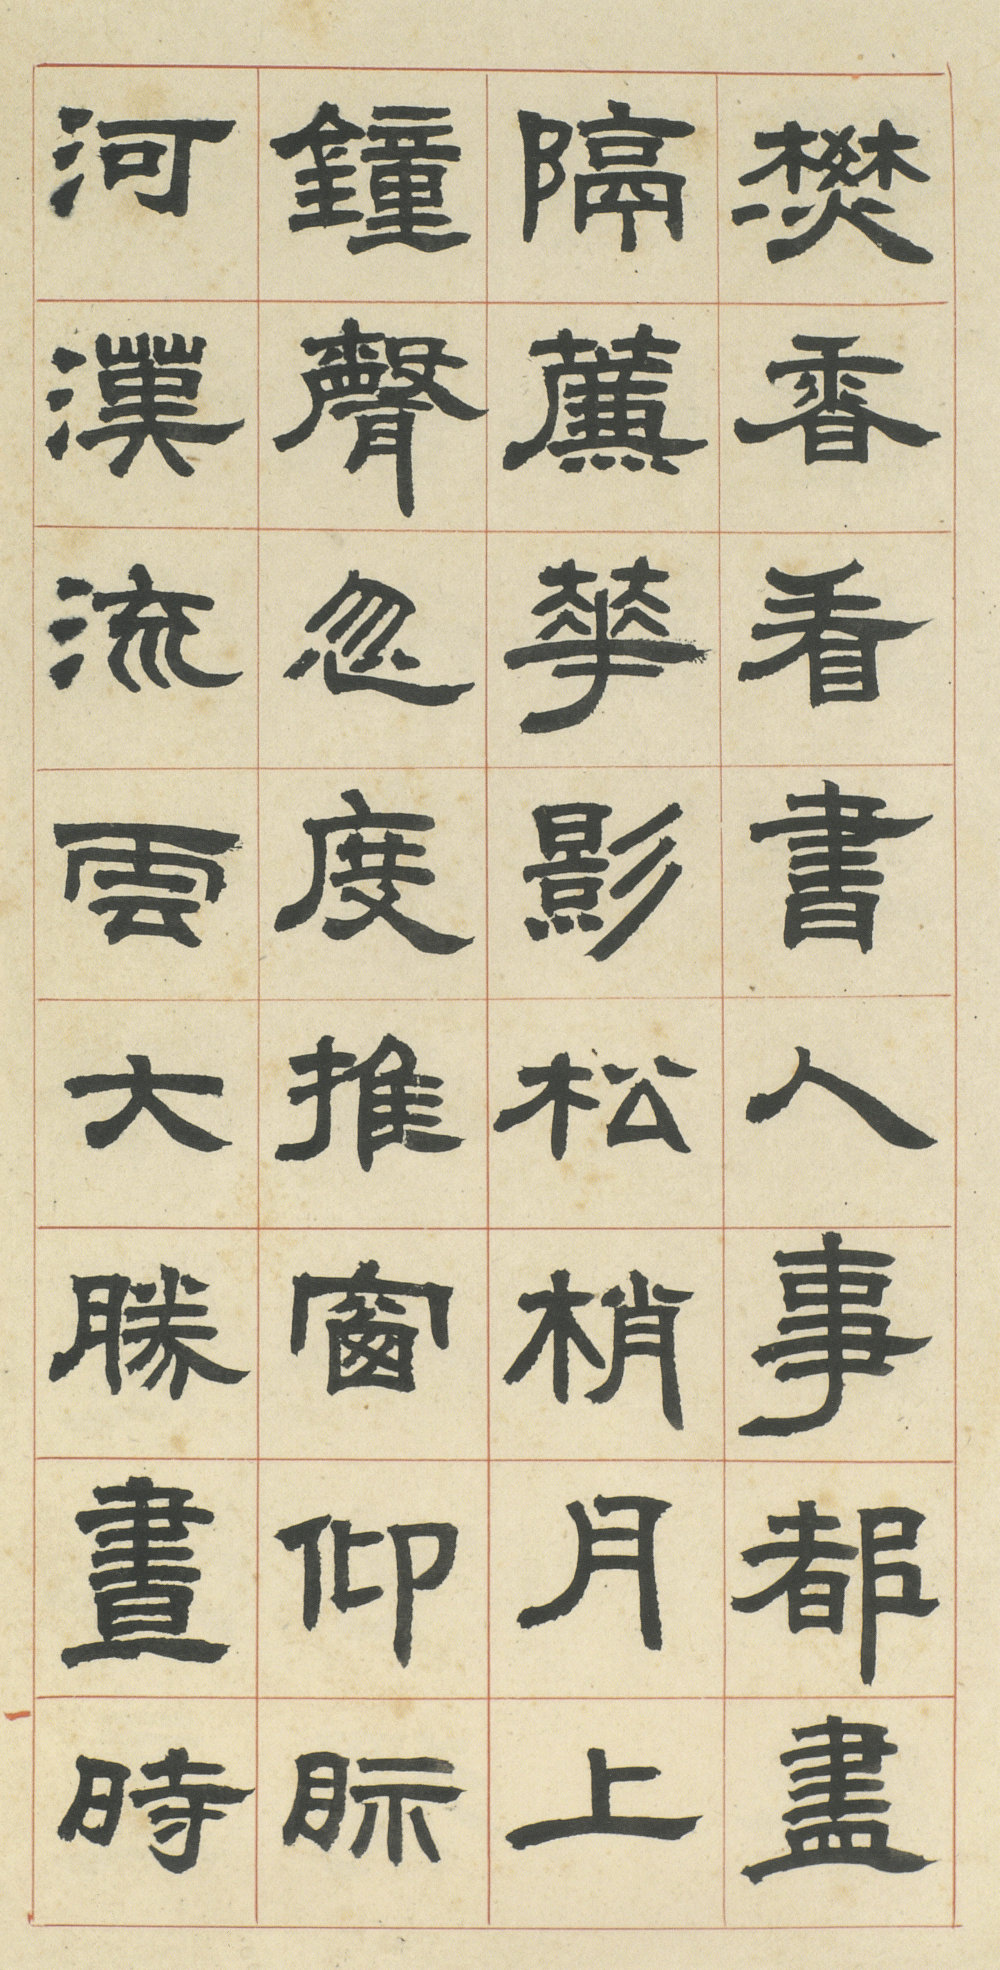 焚香看書人事都盡
隔薕華影松梢月上
鐘聲忽度推窗仰眎
河漢流雲大勝晝時